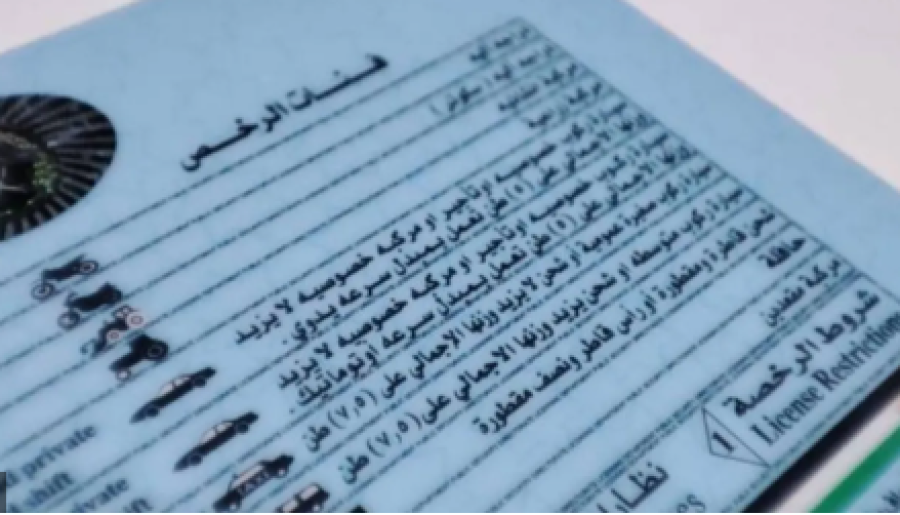 فئات الرخص
دراجة آلية
دراجة آلية (سكوتر)
مركبة خفيفة
مركبة زراعية
سيارة ركوب خصوصيه او تأجير او مركبه خصوصيه لا يزيد
وزنها الاجمالي على (٥) طن تعمل بمبدل سرعه يدوي.
سيارة ركوب خصوصيه او تأجير او مركبه خصوصيه لا يزيد
وزنها الاجمالي على (٥) طن تعمل بمبدل سرعه اوتوماتيك.
سيارة ركوب صغيرة عمومية او شحن لا يزيد وزنها الاجمالي على (٧,٥) طن
سيارة ركوب متوسطه او شحن يزيد وزنها الاجمالي على (٧,٥) طن
شحن قاطرة ومقطورة او راس قاطر ونصف مقطورة
حافلة
مركبة معدين
شروط الرخصة
1 License Restriction
private
shift
private